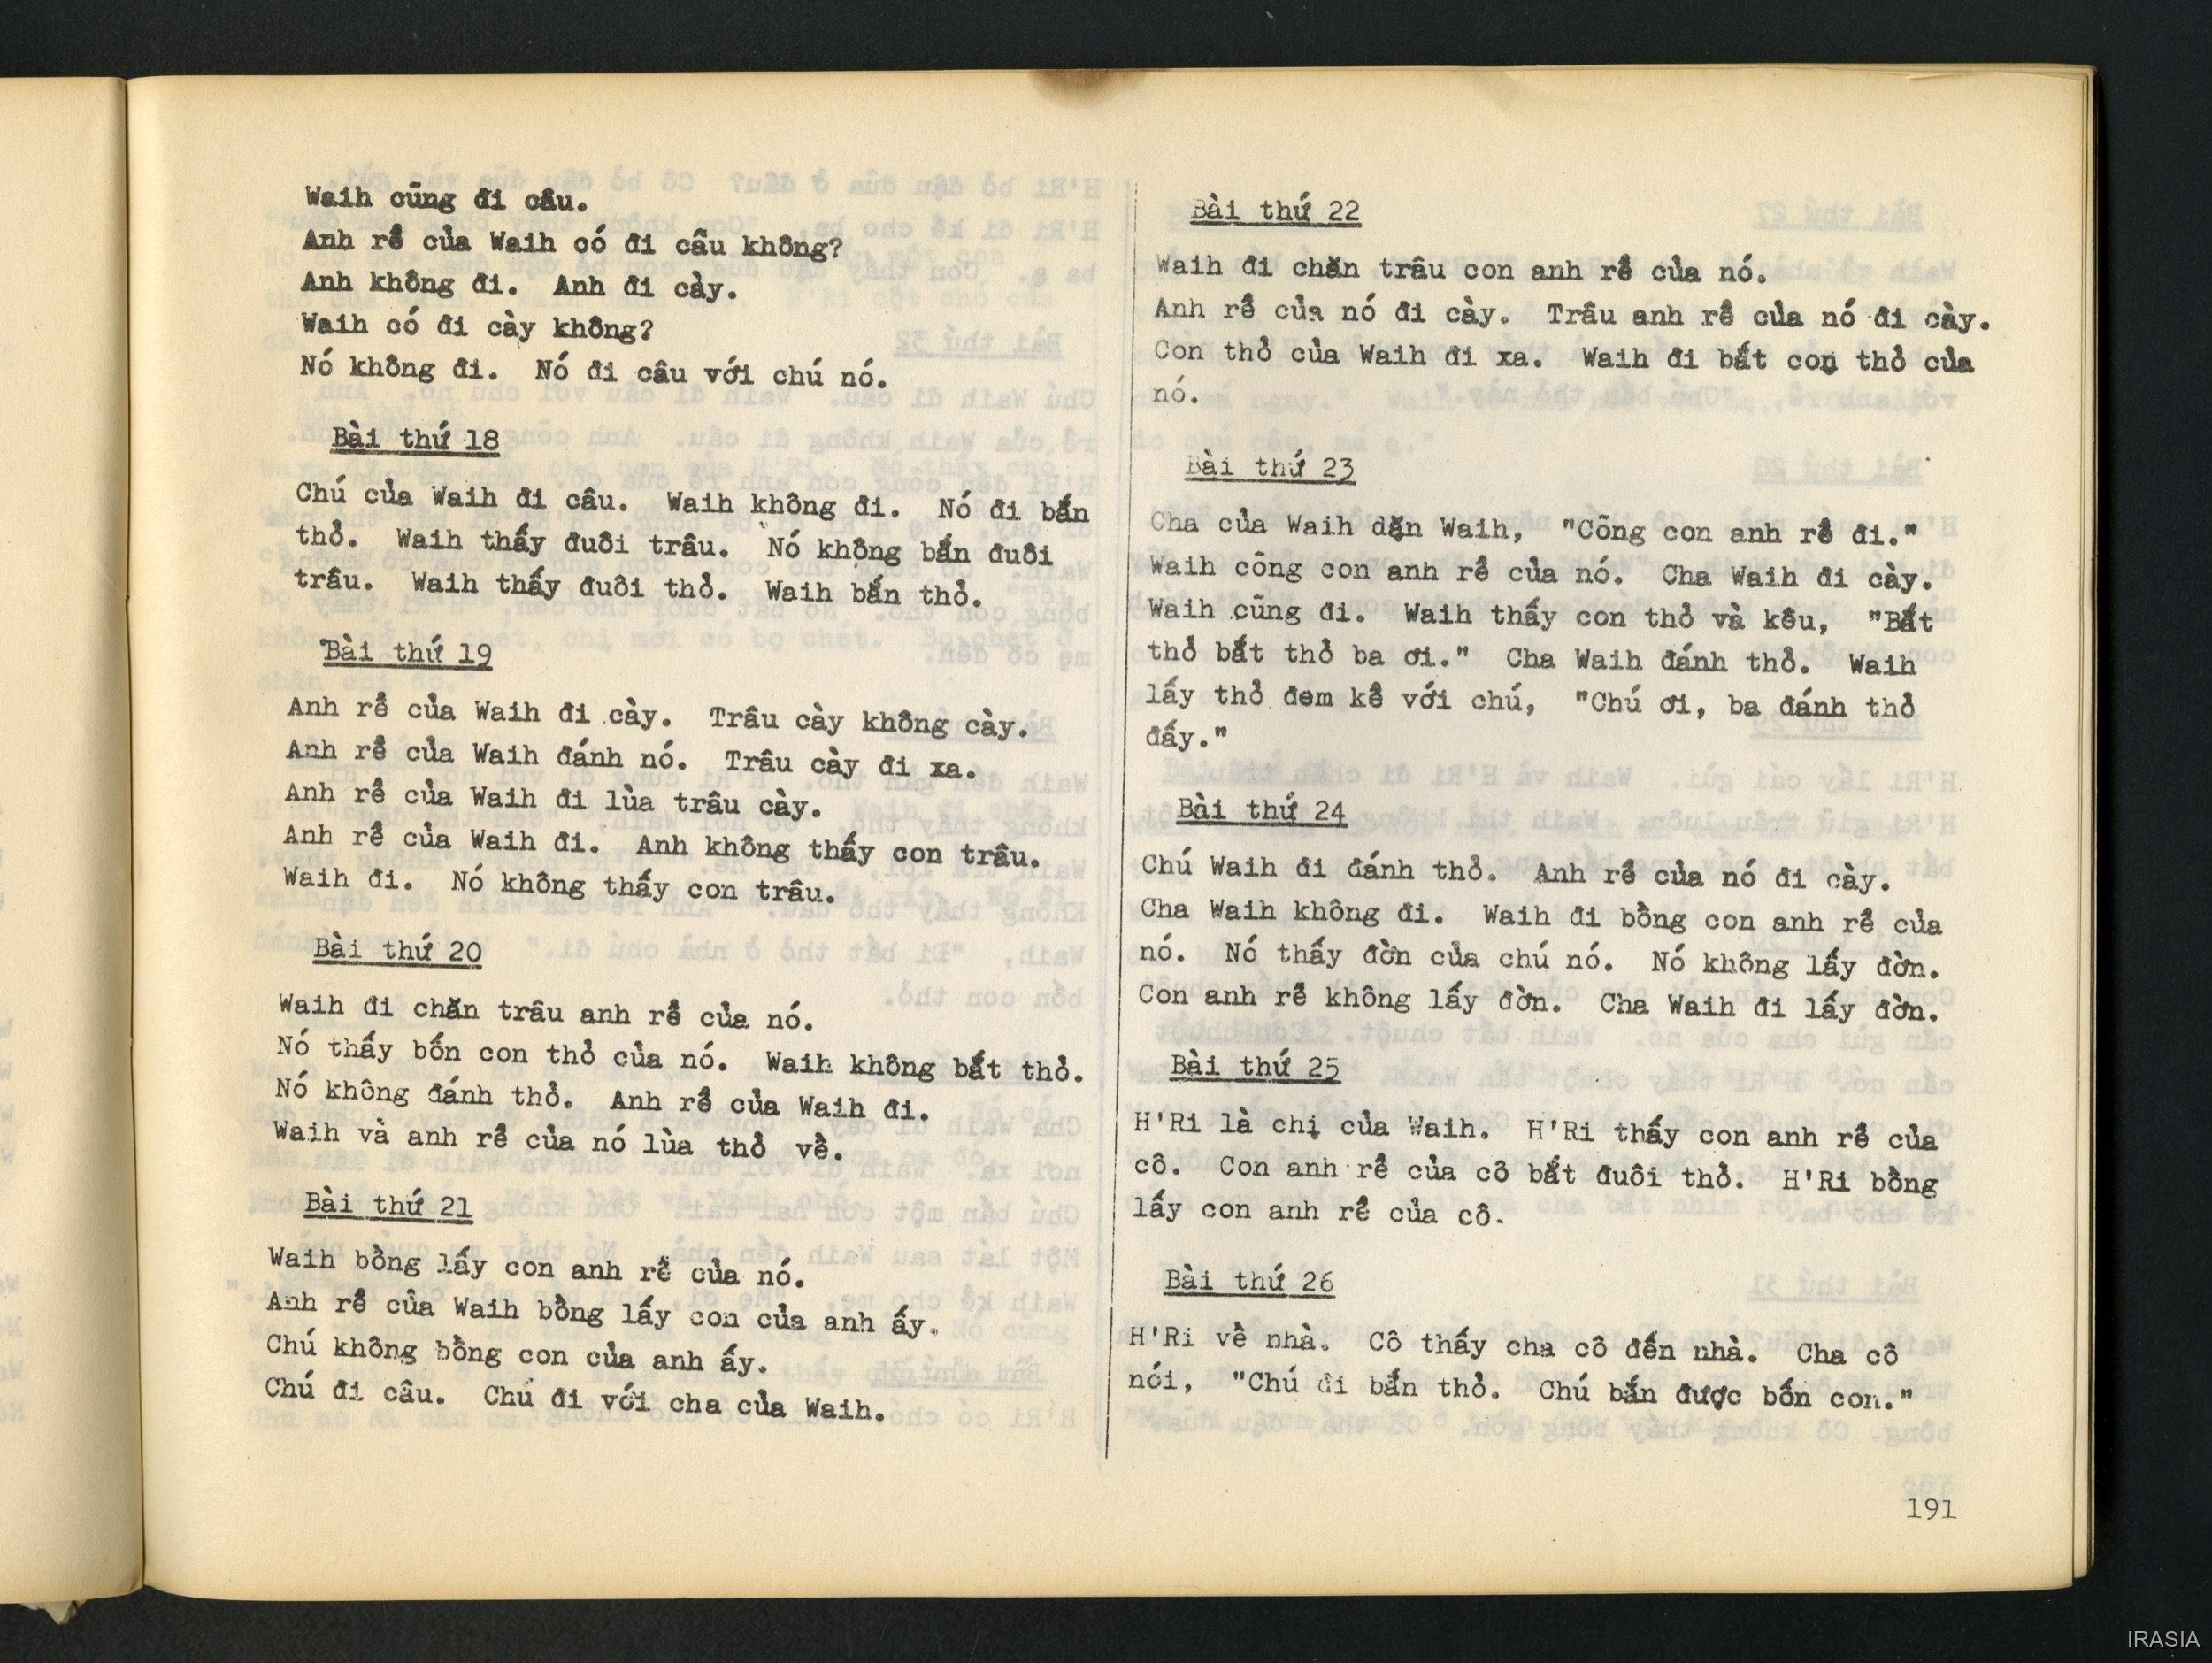 Waih cũng đi câu.
Anh rể của Waih có đi câu không?
Anh không đi.  Anh đi cày.
Waih có đi cày không?
Nó không đi.  Nó đi câu với chú nó.
Bài thứ 18
Chú của Waih đi câu.  Waih không đi.  Nó đi bắn
thỏ.  Waih thấy đuôi trâu.  Nó không bắn đuôi
trâu.  Waih thấy đuôi thỏ.  Waih bắn thỏ.
Bài thứ 19
Anh rể của Waih đi cày.  Trâu cày không cày.
Anh rể của Waih đánh nó.  Trâu cày đi xa.
Anh rể của Waih đi lùa trâu cày.
Anh rể của Waih đi.  Anh không thấy con trâu.
Waih đi.  Nó không thấy con trâu.
Bài thứ 20
Waih đi chăn trâu anh rể của nó.
Nó thấy bốn con thỏ của nó.  Waih không bắt thỏ.
Nó không đánh thỏ.  Anh rể của Waih đi.
Waih và anh rể của nó lùa thỏ về.
Bài thứ 21
Waih bồng lấy con anh rể của nó.
Anh rể của Waih bồng lấy con của anh ấy.
Chú không bồng con của anh ấy.
Chú đi câu.  Chú đi với cha của Waih.
Bài thứ 22
Waih đi chăn trâu con anh rể của nó.
Anh rể của nó đi cày.  Trâu anh rể của nó đi cày.
Con thỏ của Waih đi xa.  Waih đi bắt con thỏ của
nó.
Bài thứ 23
Cha của Waih dặn Waih,  "Cõng con anh rể đi."
Waih cõng con anh rể của nó.  Cha Waih đi cày.
Waih cũng đi.  Waih thấy con thỏ và kêu,  "Bắt
thỏ bắt thỏ ba ơi."  Cha Waih đánh thỏ.  Waih
lấy thỏ đem kể với chú,  "Chú ơi, ba đánh thỏ
đấy."
Bài thứ 24
Chú Waih đi đánh thỏ.  Anh rể của nó đi cày.
Cha Waih không đi.  Waih đi bồng con anh rể của
nó.  Nó thấy đờn của chú nó.  Nó không lấy đờn.
Con anh rể không lấy đờn.  Cha Waih đi lấy đờn.
Bài thứ 25
H'Ri là chị của Waih.  H'Ri thấy con anh rể của
cô.  Con anh rể của cô bắt đuôi thỏ.  H'Ri bồng
lấy con anh rể của cô.
Bài thứ 26
H'Ri về nhà.  Cô thấy cha cô đến nhà.  Cha cô
nói,  "Chú đi bắn thỏ.  Chú bắn được bốn con."
191
IRASIA